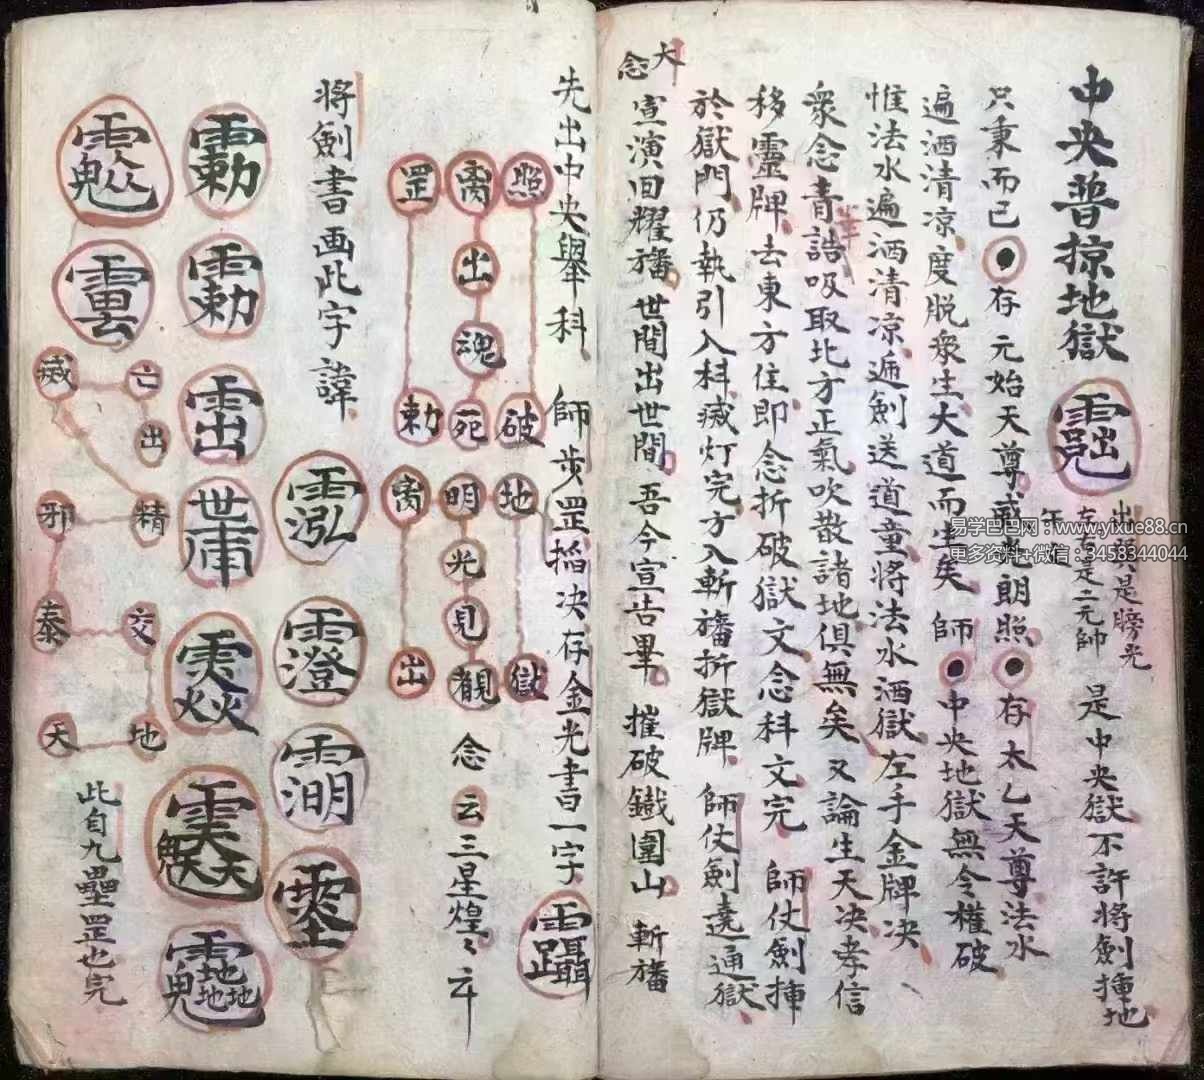 中央普掠地獄
出頭是膀光
左右是二元帥
是中央獄不許將劍揷地
只秉而已
存元始天尊威光朗照
存太乙天尊法水
遍洒清凉度脱衆生大道而生矣
師
中央地獄無令權破
惟法水遍洒清凉遍劍送道童將法水洒獄左手金牌决
衆念青誥吸取北方正氣吹散諸地俱無矣又論生天决孝信
移靈牌去東方住即念折破獄文念科文完師仗劍揷
於獄門仍執引入科滅灯完方入斬旛折獄牌師仗劍遶通獄
大念
宣演囬耀旛世間出世間吾今宣告畢摧破鐵圍山斬旛
先出中央舉科師步罡掐决存金光書一字
照破地獄
离出魂死明光見觀
罡勅离出
念云三星煌〻云
將劍書画此字諱
亡出精交地
滅邪泰天
此自九壘罡也完
易学巴巴网：www.yixue88.cn
更多资料+微信：3458344044